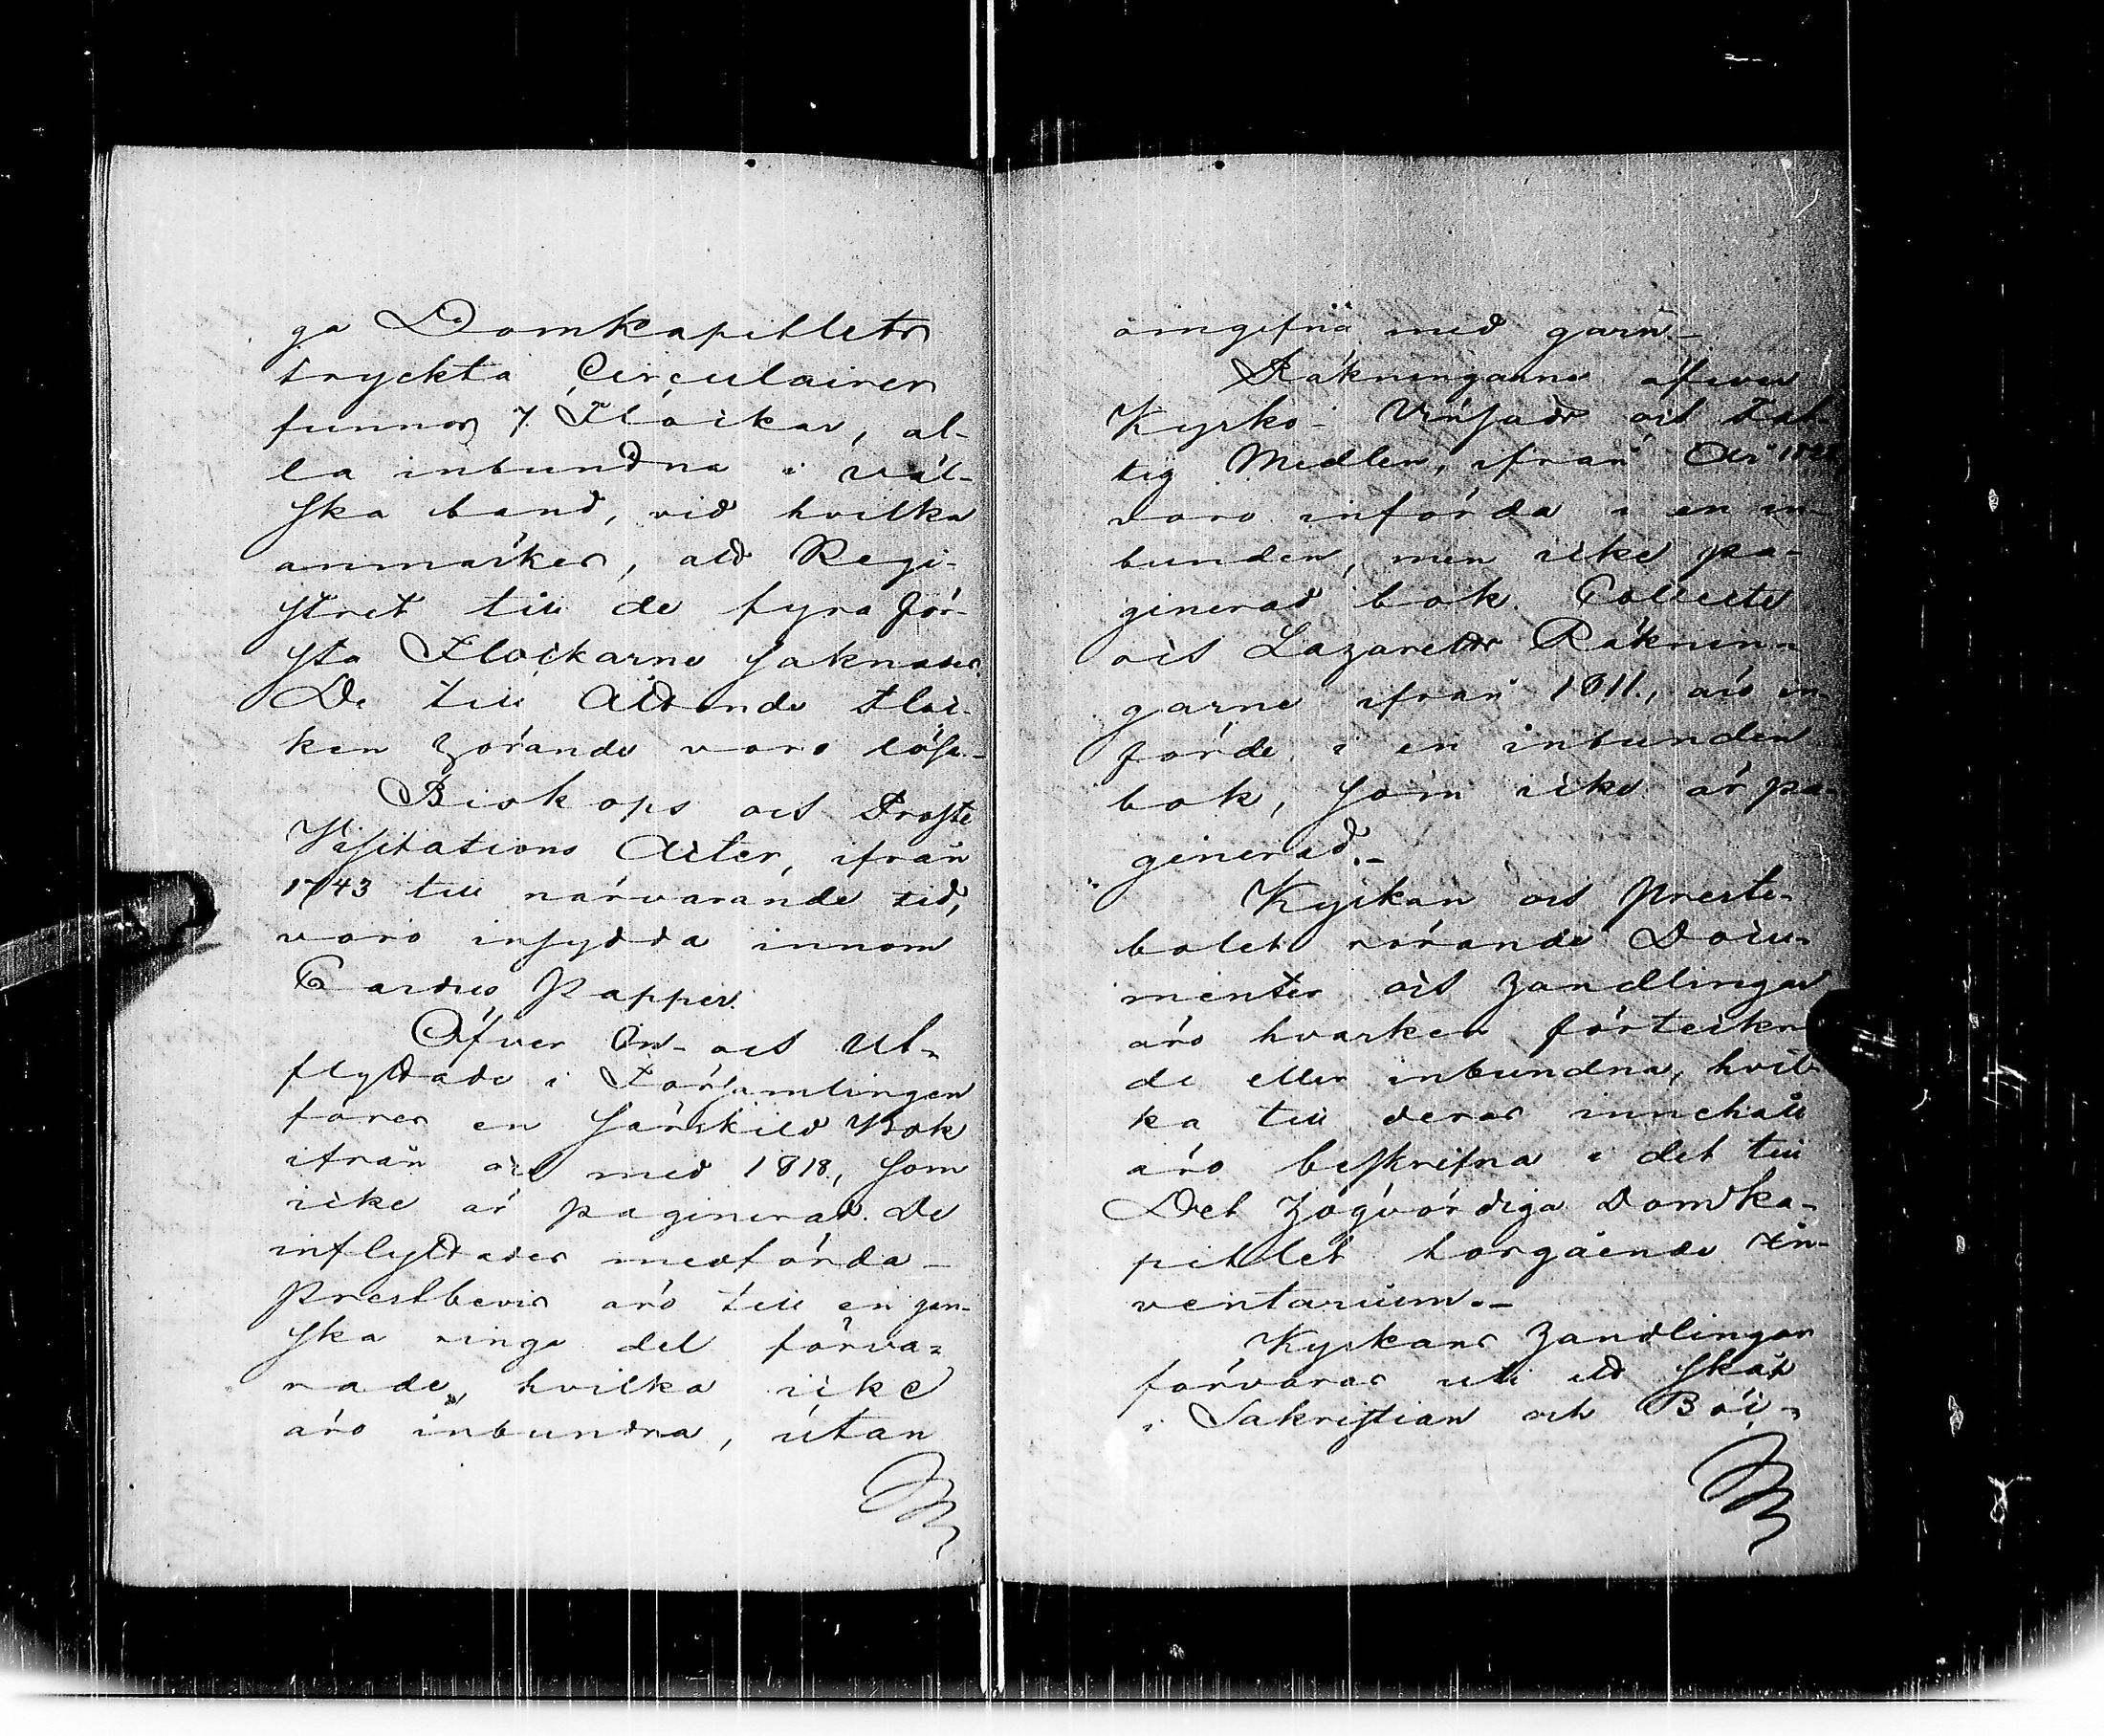 ga Domkapitlets
tryckta Circulairer
funnos 7. Flockar, al-
la inbundna i väl-
ska band, vid hvilka
anmärkes, att Regi-
stret till de fyra för-
sta Flockarne saknades.
De till Åttonde Floc-
ken hörande voro lösa.-
Biskops och Proste
Visitations Acter, ifrån
1743 till närvarande tid,
voro insydda innom
Cardus Papper.
Öfver In- och Ut-
flyttade i Församlingen
föres en särskild Bok
ifrån och med 1818, som
icke är paginerad. De
inflyttades medförda
Prestbevis äro till en gan-
ska ringa del förva-
rade, hvilka icke
äro inbundna, utan
omgifna med garn.-
Räkningarne öfver
Kyrko- Vinsäds och Fat-
tig Medlen, ifrån År
voro införda i en in-
bunden, men icke pa-
ginerad bok. Collecte
och Lazaretts Räknin-
garne ifrån 1811, äro in-
förde i en inbunden
bok, som icke är pa-
ginerad.-
Kyrkan och Preste-
bolet rörande Docu-
menter och Handlingar
äro hvarken förteckna-
de eller inbundna, hvil-
ka till deras innehåll
äro beskrifna i det till
Det Högvördiga Domka-
pitlet horgående In-
ventarium.-
Kyrkans Handlingar
förvaras uti ett skåp
i Sakristian och Böc-